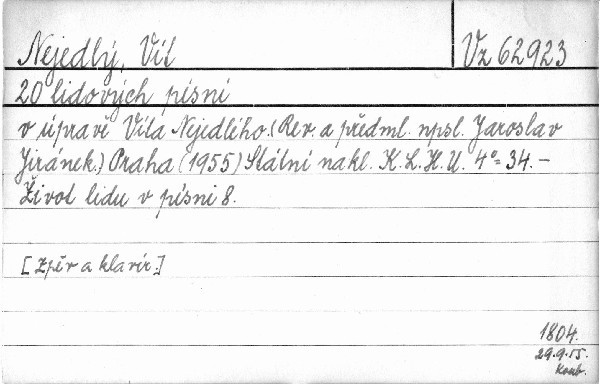 Nejedlý, Vít
Vz 62923
20 lidových písní
v úpravě Víta Nejedlého. (Rev. a předml. npsl. Jaroslav
Jiránek.) Praha (1955) Státní nakl. K.L.H.U. 4° = 34. -
Život lidu v písni 8.
[Zpěv a klavír.]
1804.
29.9.55.
Koub.